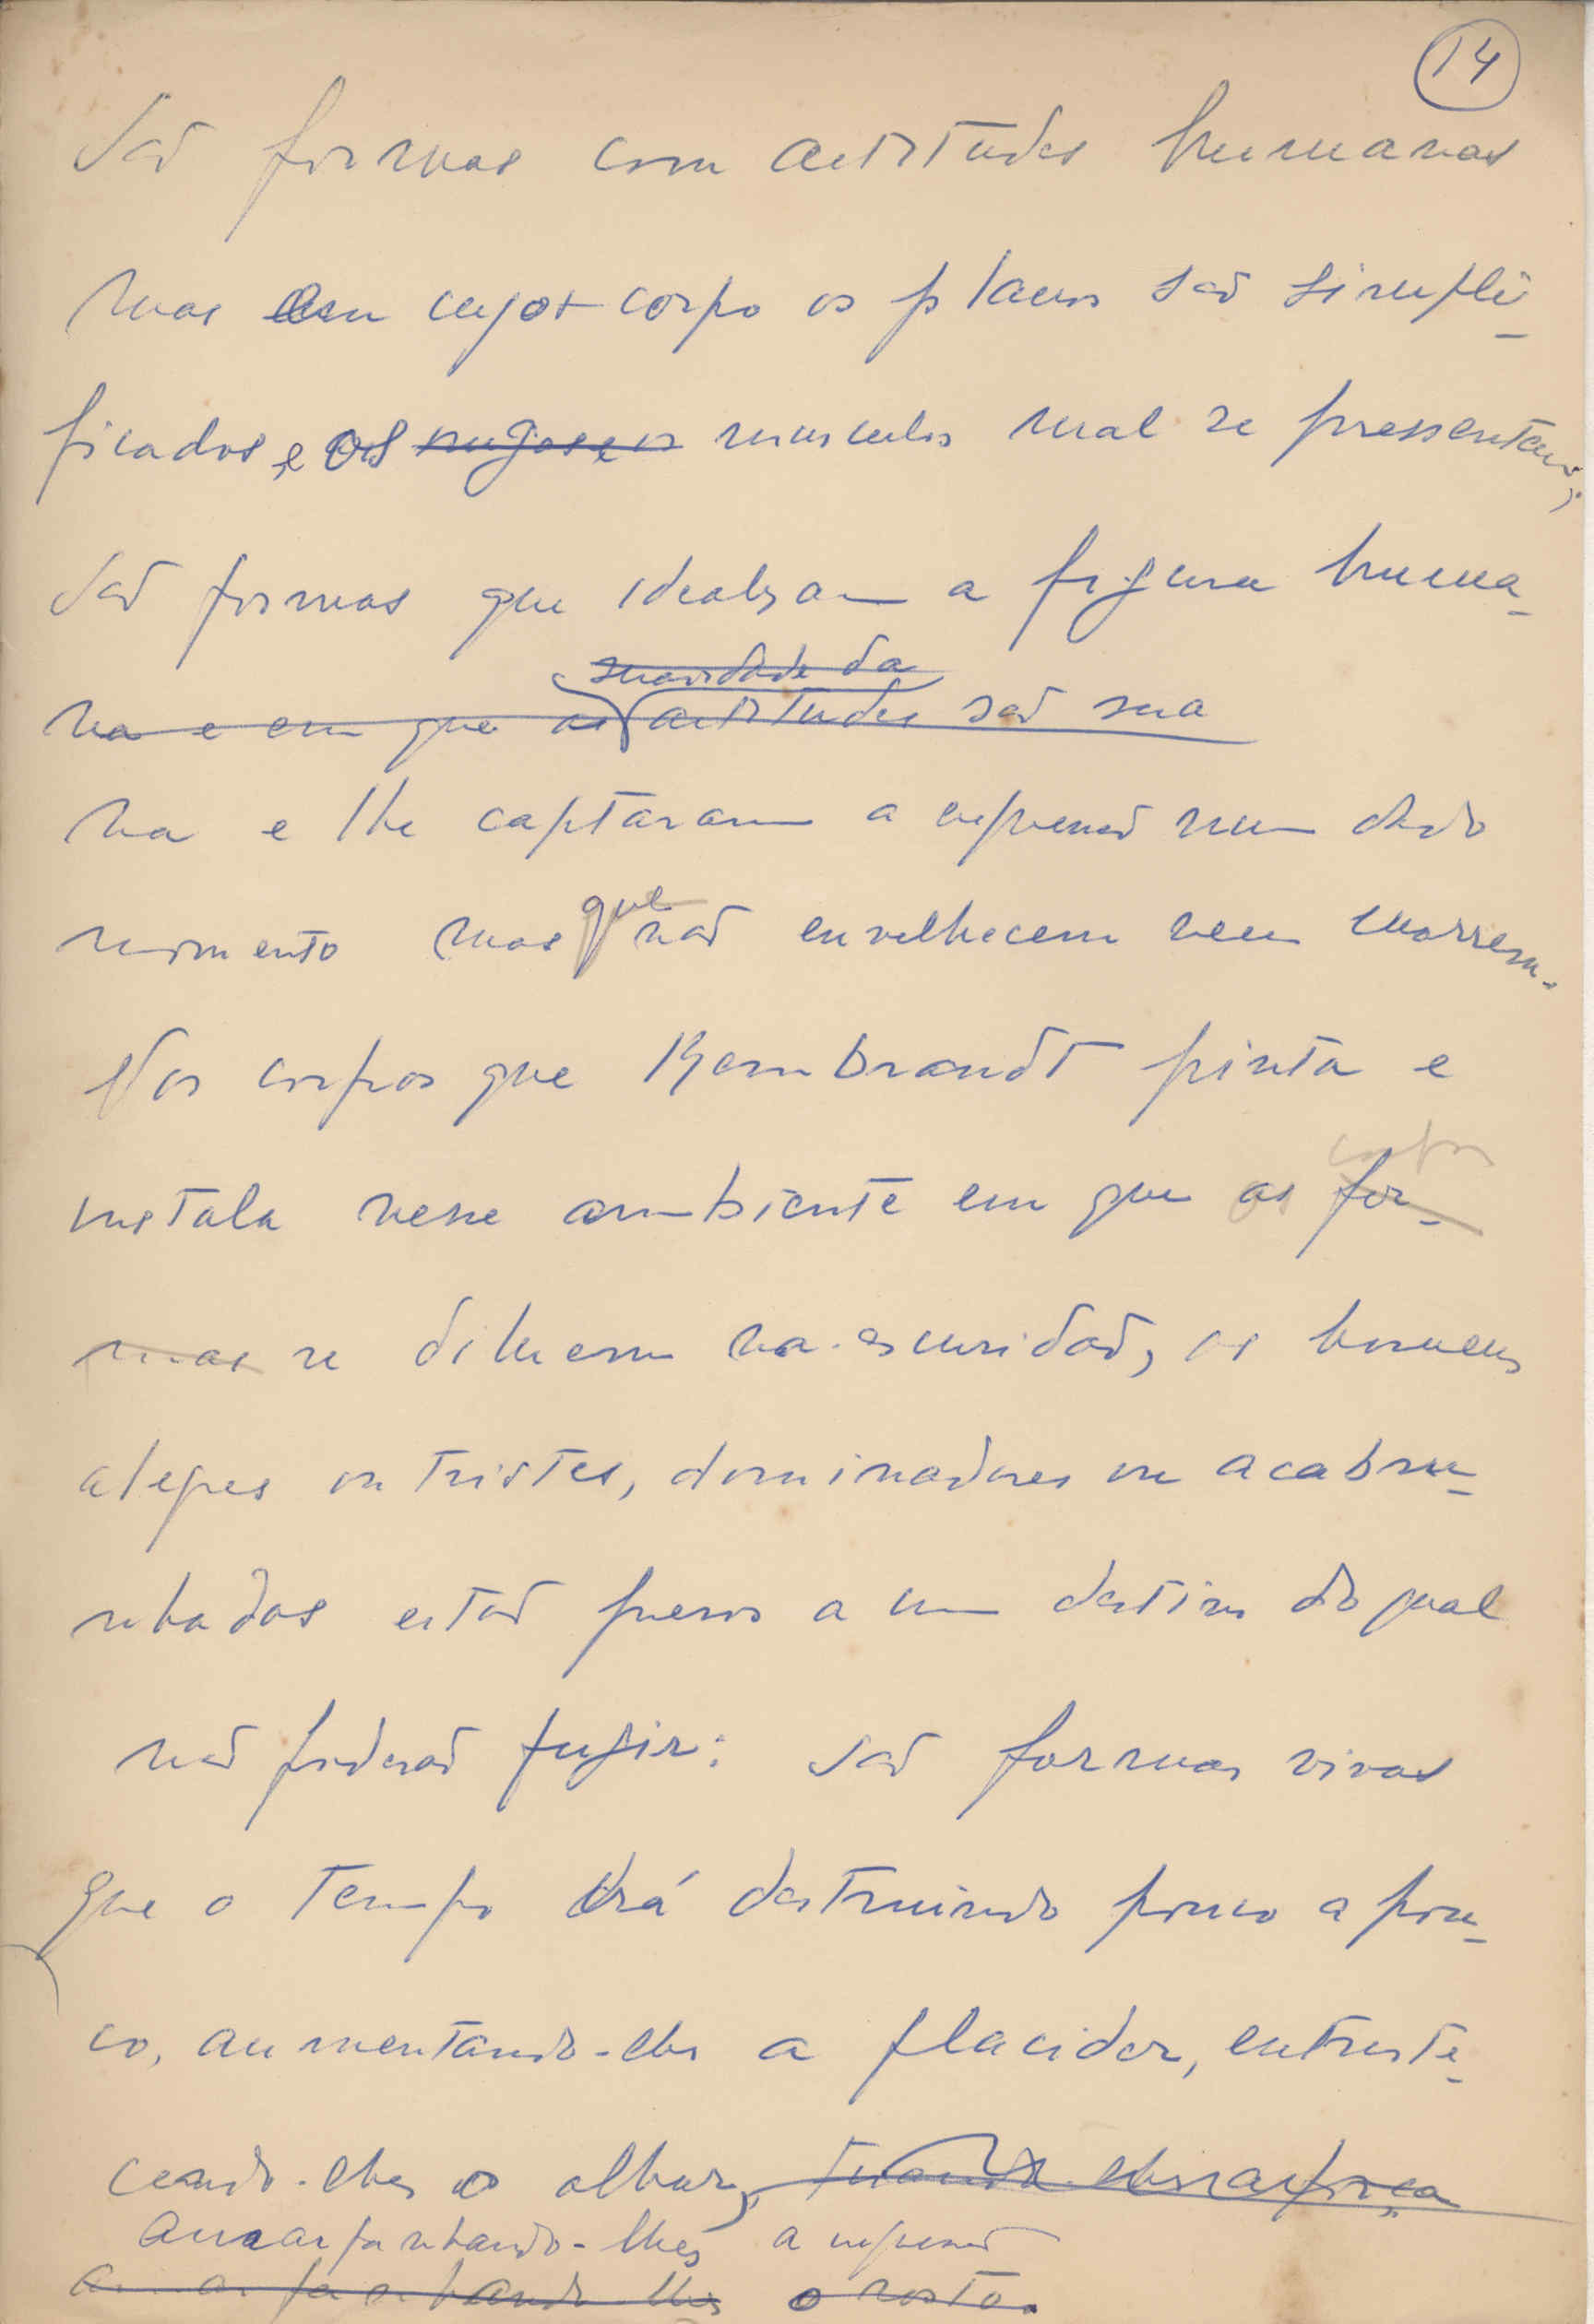 14
São formas com actitudes humanas
mas em cujo corpo os planos são simpli-
ficados, e os rugose, os musculos mal se pressentem;
São formas que idealizam a figura huma-
suavidade da
na e em que as actitudes são sua
na e lhe captaram a expressão num dado
momento mas que não envelhecem nem morrem.
Nos corpos que Rembrandt pinta e
corpos
instala nesse ambiente em que as for-
mas se diluem na escuridão, os homens
alegres ou tristes, dominadores ou acabru-
nhados estão presos a um destino do qual
não poderão fugir: são formas vivas
que o tempo irá destruindo pouco a pou-
co, aumentando-lhes a flacidez, entriste-
cendo-lhes o olhar, tirando-lhes a força
amarfanhando-lhes a expressão
amarfanhando-lhes o rosto.